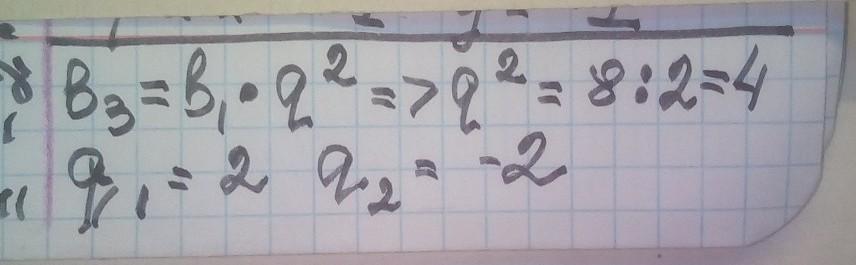 b₃ = b₁ • q² => q² = 8 : 2 = 4
q₁ = 2 q₂ = -2